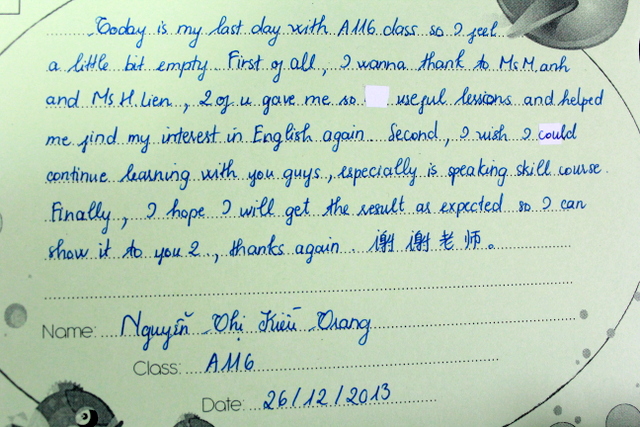 Today is my last day with A116 class so I feel
a little bit empty. First of all, I wanna thank to Ms M.anh
and Ms H.Lien, 2 of u gave me so useful lessions and helped
me find my interest in English again. Second, I wish I could
continue learning with you guys, especially is speaking skill course.
Finally, I hope I will get the result as expected so I can
show it to you 2., thanks again. 谢谢老师。
Name: Nguyễn Thị Kiều Trang
Class: A116
Date: 26/12/2013